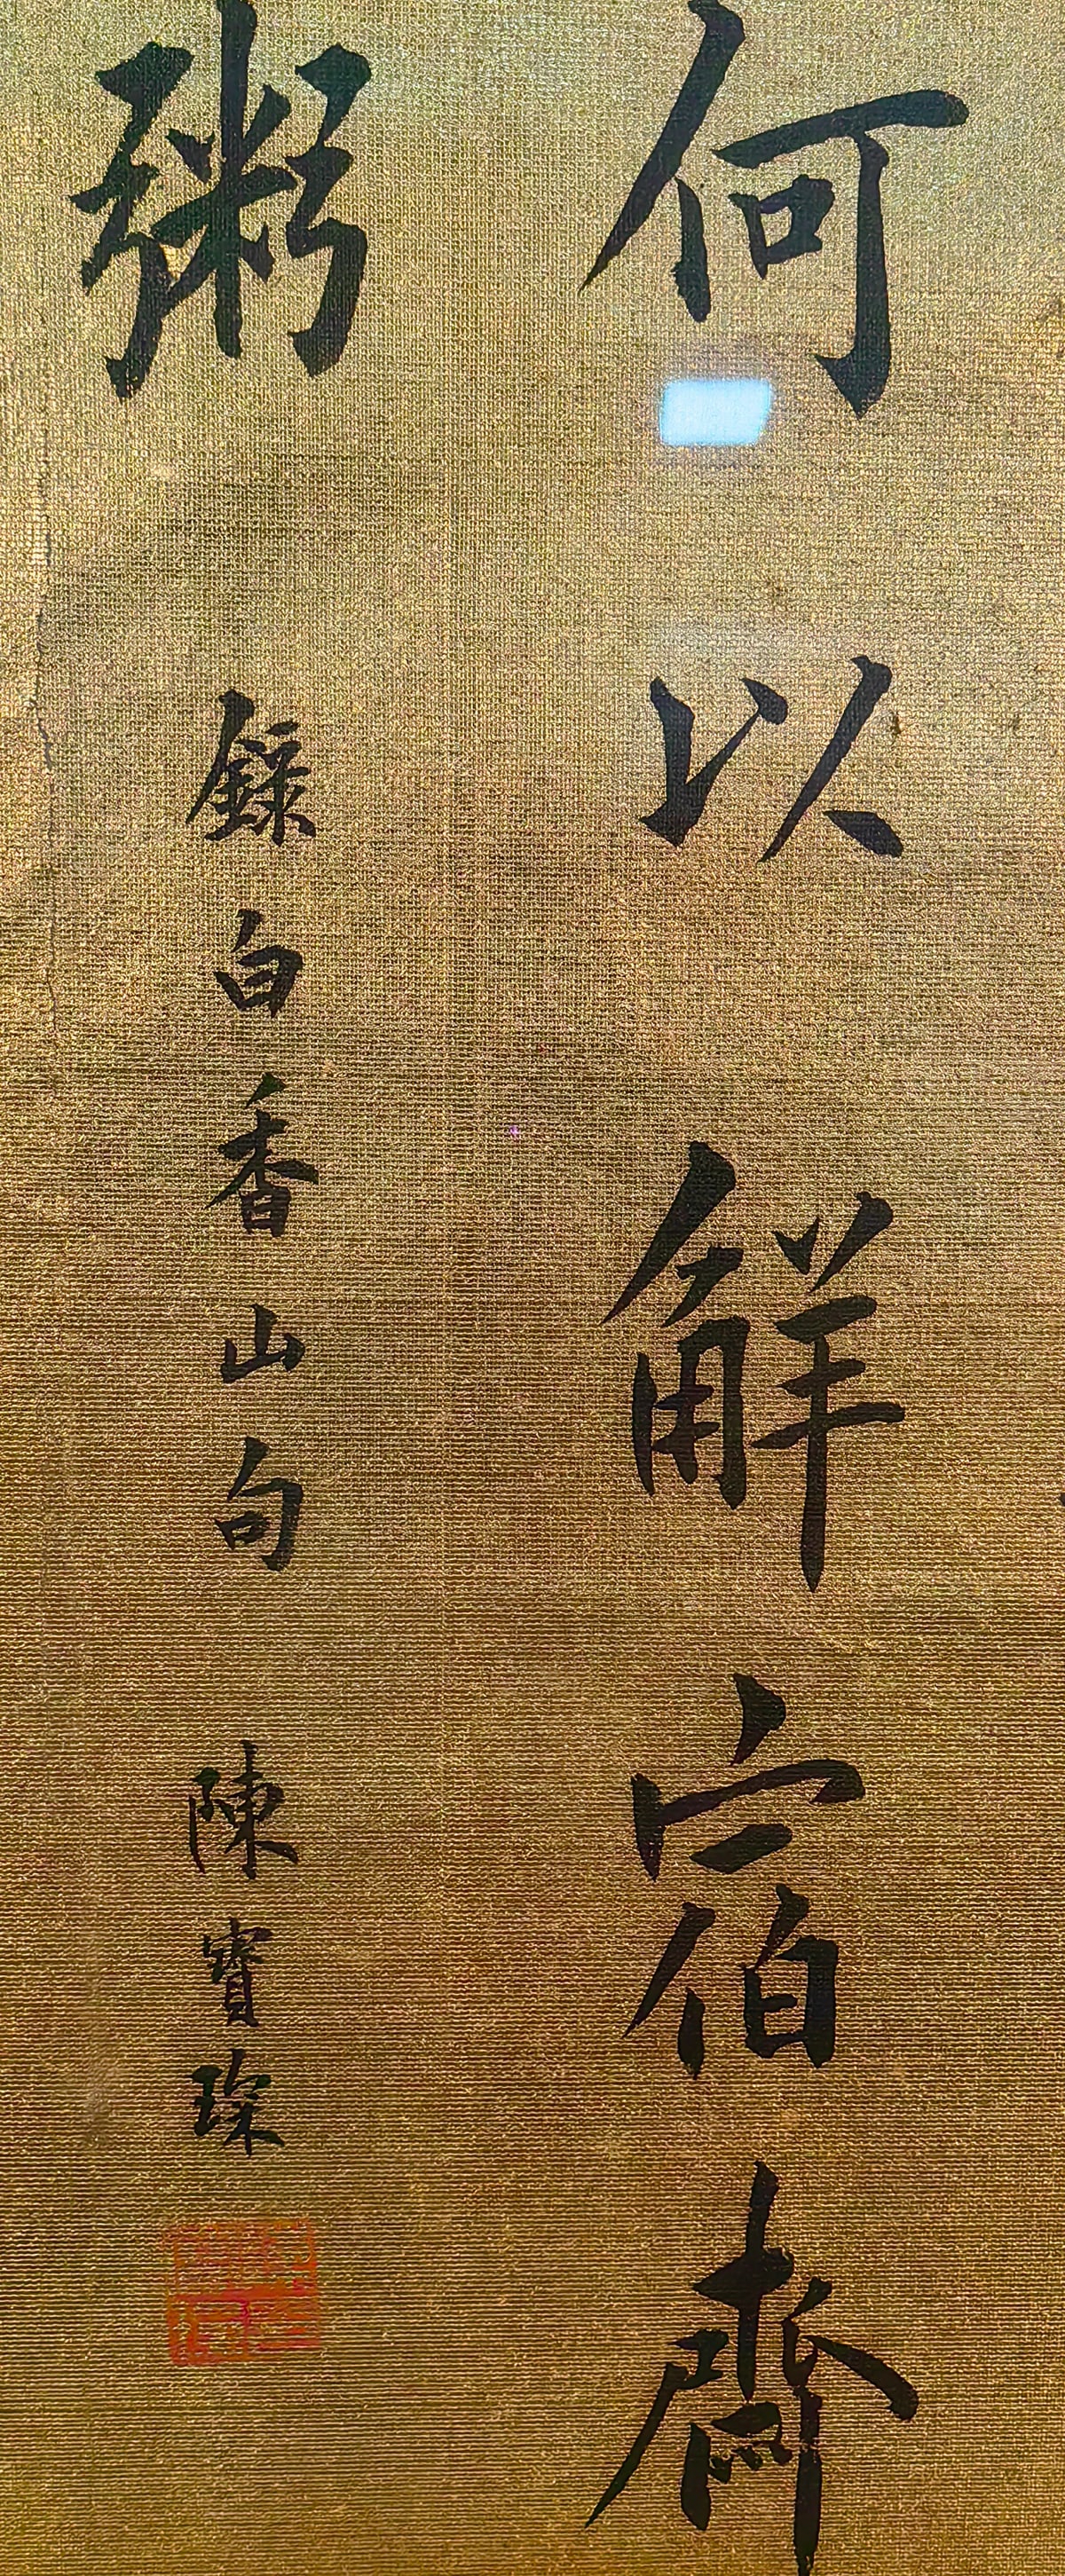 何以觧宿齋
粥
錄白香山句 陳寶琛